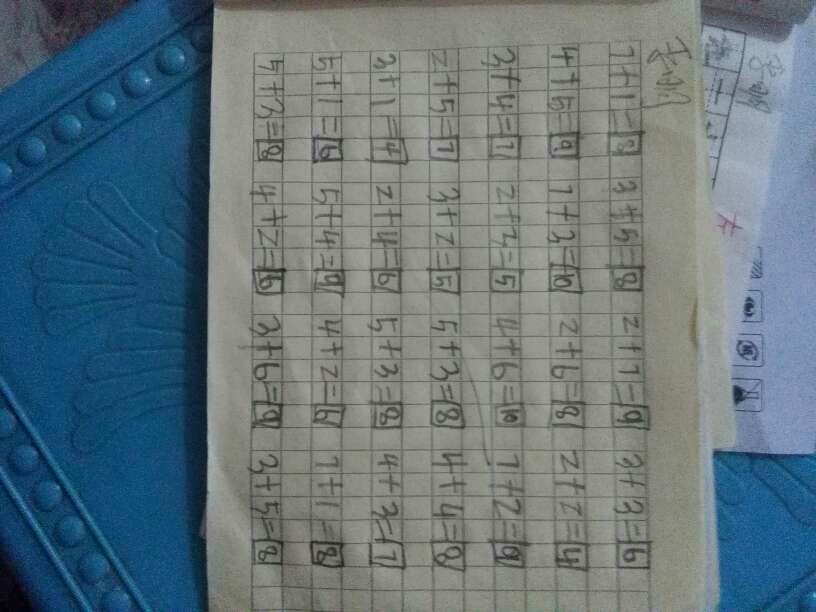 7+1=8 3+5=8 2+7=9 3+3=6
4+5=9 7+3=10 2+6=8 2+2=4
3+4=7 2+3=5 4+6=10 7+2=9
2+5=7 3+2=5 5+3=8 4+4=8
3+1=4 2+4=6 5+3=8 4+3=7
5+1=6 5+4=9 4+2=6 7+1=8
5+3=8 4+2=6 3+6=9 3+5=8